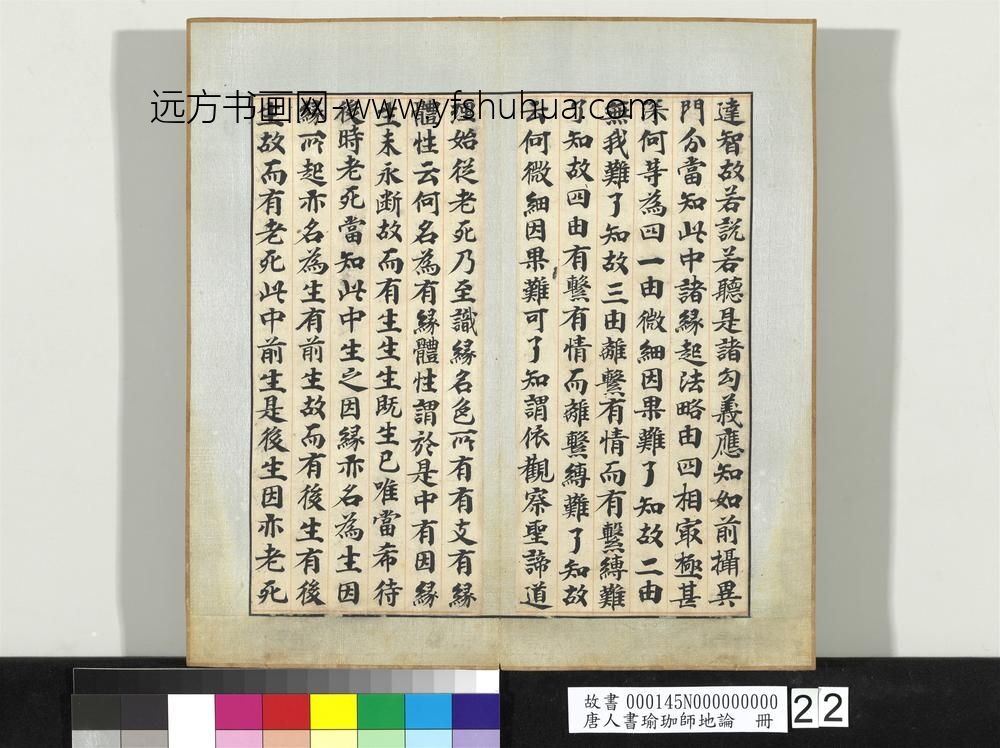 远方书画网-www.yfshuhua.com
達智故若說若聽是諸勾義應知如前攝異
門分當知此中諸緣起法略由四相㝡極甚
深何等為四一由微細因果難了知故二由
無我難了知故三由離繫有情而有繫縛難
了知故四由有繫有情而離繫縛難了知故
云何微細因果難可了知謂依觀察聖諦道
始從老死乃至識緣名色所有有支有緣
體性云何名為有緣體性謂於是中有因緣
生未永断故而有生生生既生已唯當希待
後時老死當知此中生之因緣亦名為生因
緣所起亦名為生有前生故而有後生有後
生故而有老死此中前生是後生因亦老死
故書 000145N000000000
唐人書瑜珈師地論 冊
22